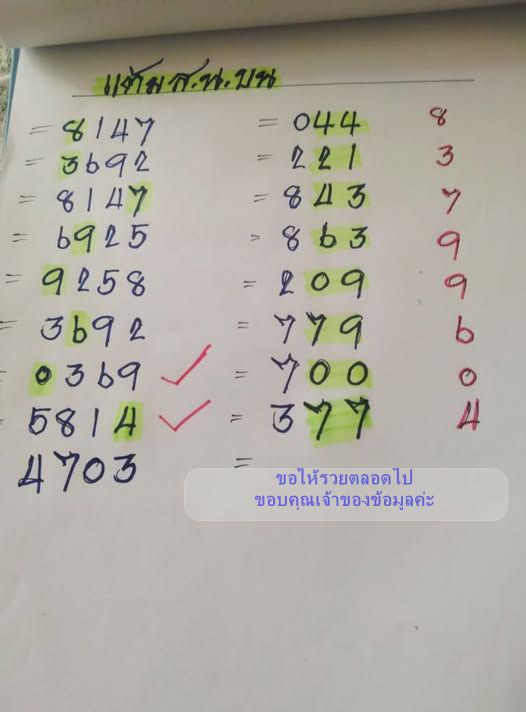 แต้ม ส.น.บน
= 8147 = 044 8
= 3692 = 221 3
= 8147 = 843 7
= 6925 = 863 9
= 9258 = 209 9
= 3692 = 779 6
= 0369 ✓ = 700 0
= 5814 ✓ = 377 4
4703 =
ขอให้รวยตลอดไป
ขอบคุณเจ้าของข้อมูลค่ะ